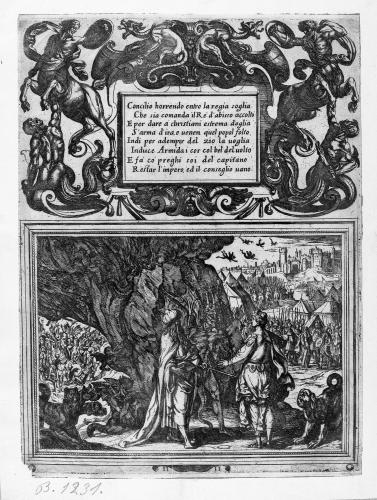 Concilio horrendo entro la regia soglia
Che sia comanda il Rè d'abisso accolto
E per dare a christiani estrema doglia
S'arma d'ira e venen quel popol folto
Indi per adempir del zio la voglia
Induce Armida i cor col bel del volto
E fà co preghi soi del capitano
Restar l'impero ed il conseglio vano
B. 1231.